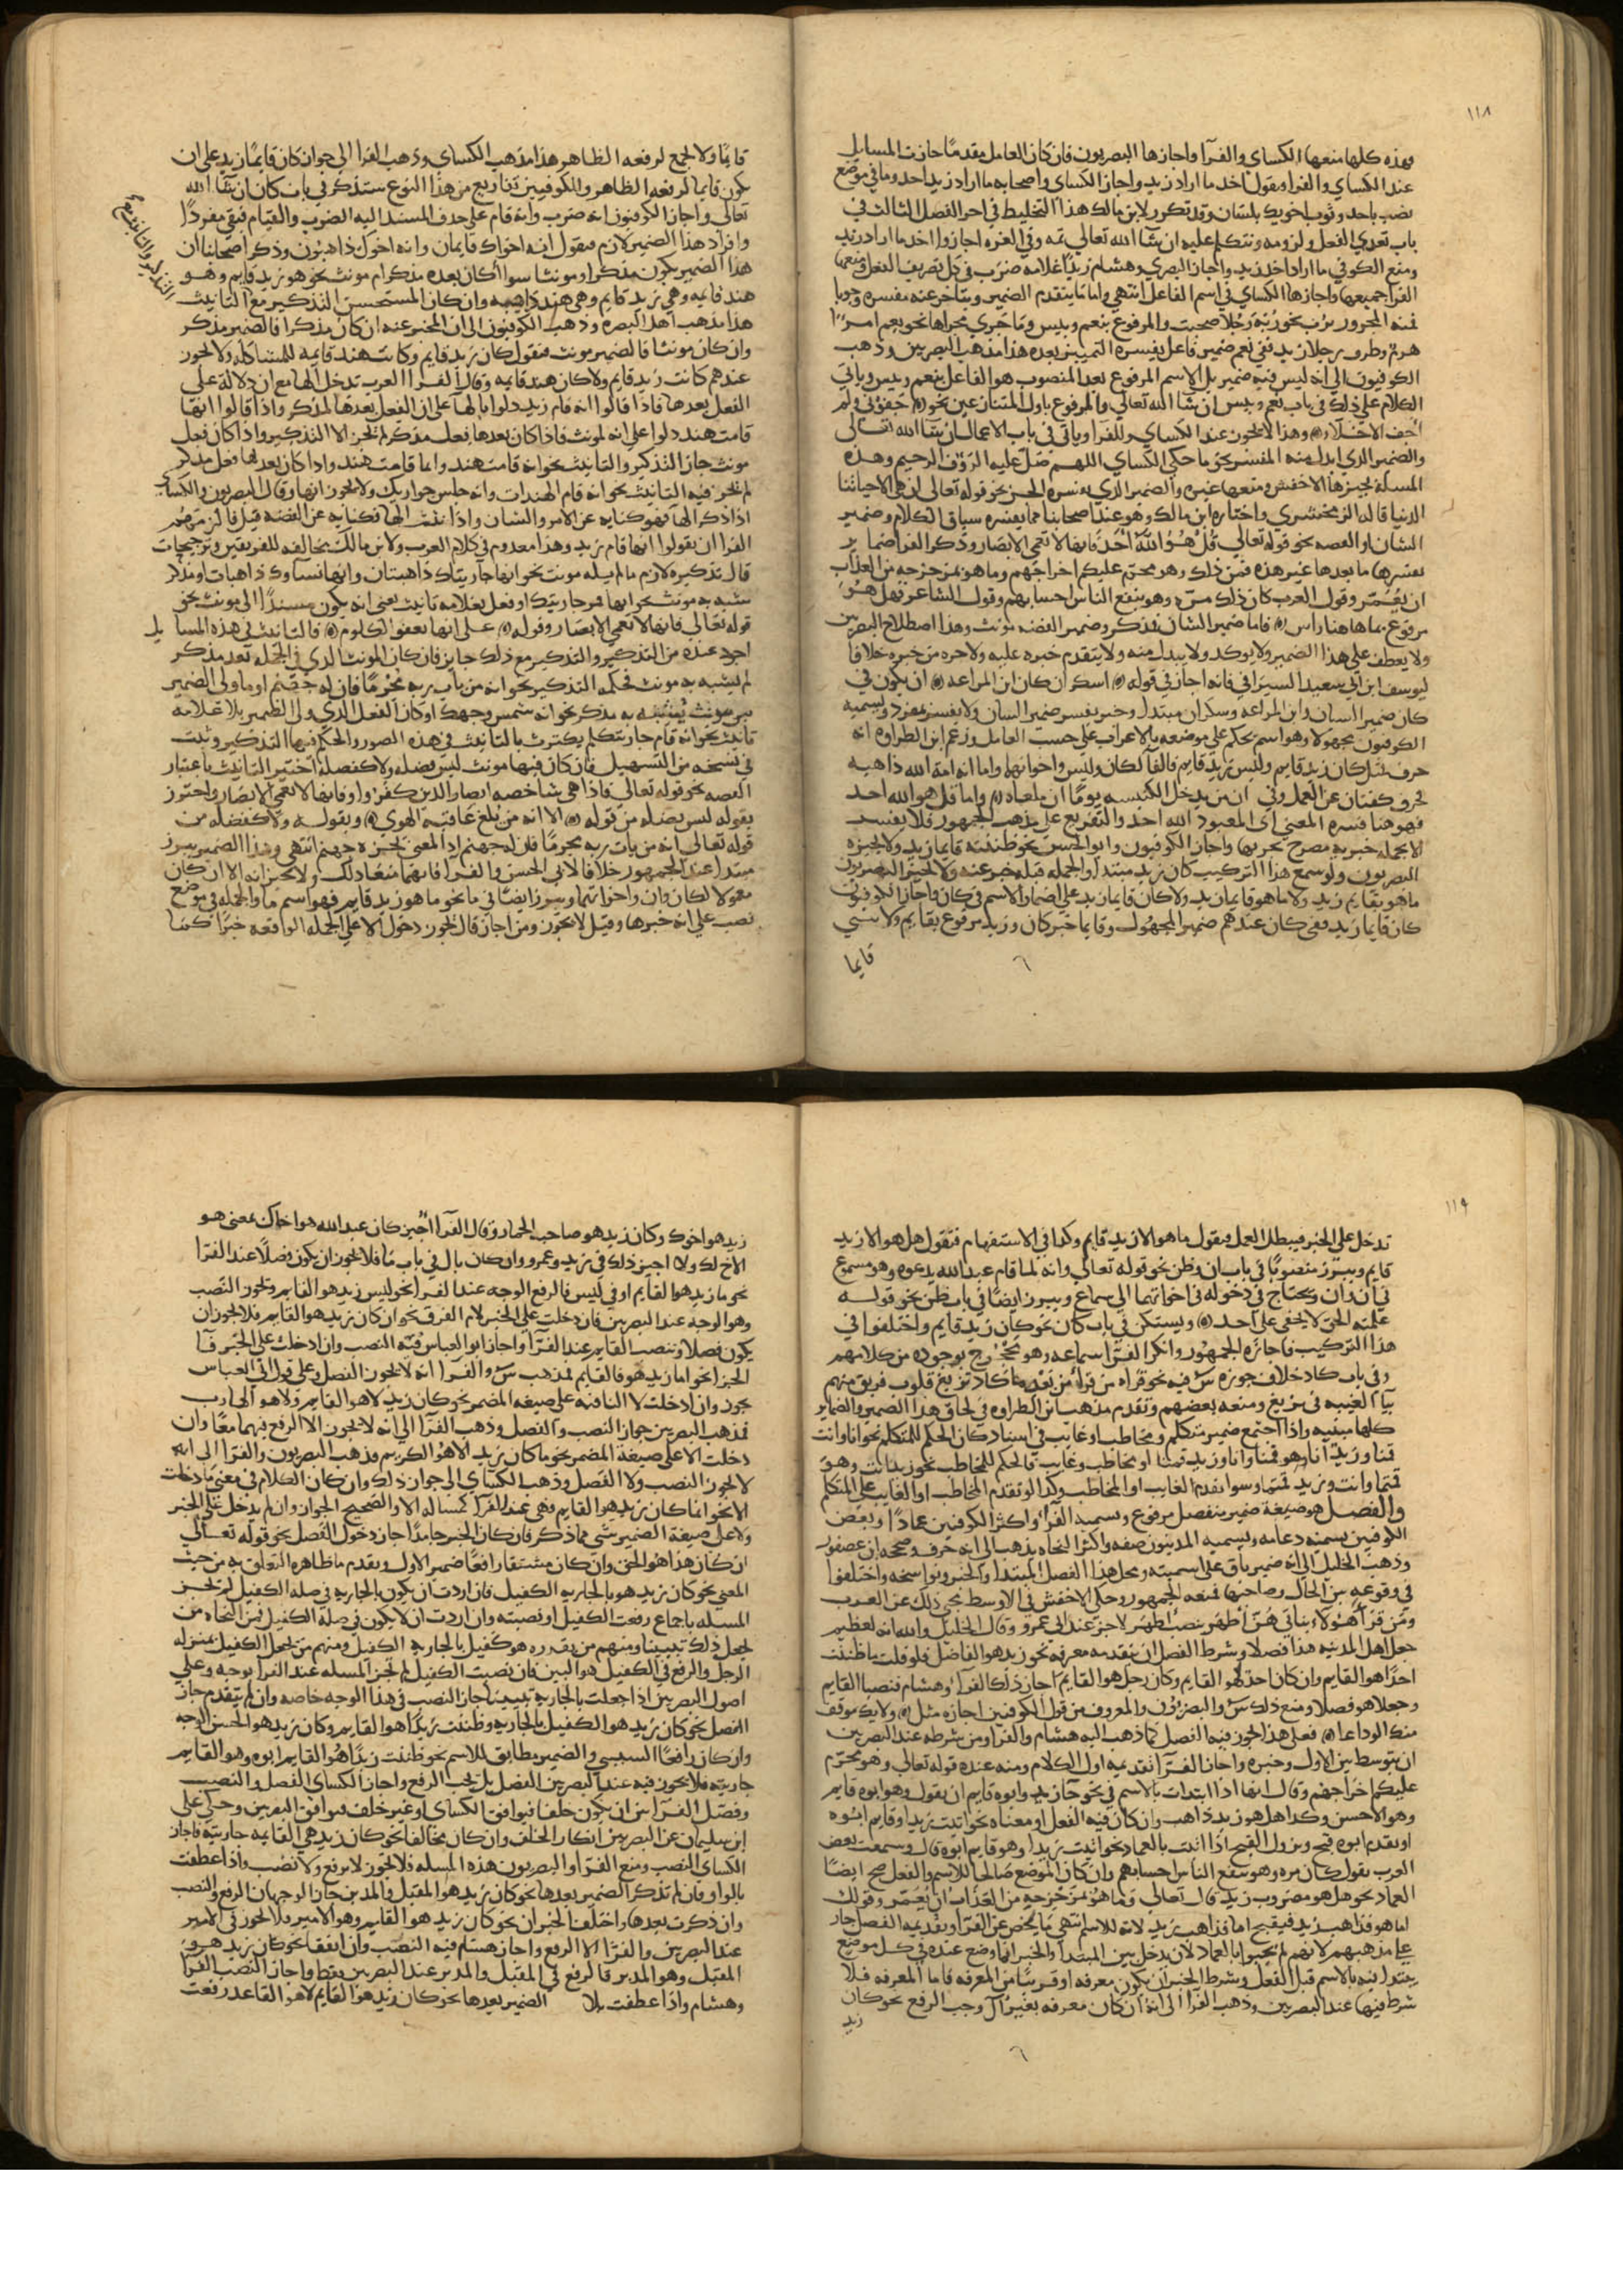 ١١٨
فهذه كلها منعها الكساي والفرآ واجازها البصريون فان كان العامل مقدما جازت المسايل
عند الكساي والفرا وىقول اخذ ما اراد زيد واجاز الكساي واصحابه ما اراد زيد احد وما في موضع
نصب باحد وثوب اخويك يلبسان وقد تكرر لابن مالك هذا التخليط في اخر الفصل الثالث في
باب تعدي الفعل ولزومه ونتكلم عليه ان شا الله تعالي ثمه وفي الغره اجازوا اخذ ما اراد زيد
ومنع الكوفي ما اراد اخذ زيد واجاز البصري وهشام زيدا غلامه ضرب في كل تصريف الفعل ومنعها
الفرا جميعها واجازها الكساي في اسم الفاعل انتهي واما ما يتقدم الضمير ويتاخر عنه مفسره وجوبا
فمنه المجرور برب نحو ربه رجلا صحبت والمرفوع بنعم وبيس وما جري مجراها نحو نعم امرًا
هرم وظرف رجلا زيد ففي نعم ضمير فاعل يفسره التمييز بعده هذا مذهب البصريين وذهب
الكوفيون الي انه ليس فيه ضمير بل الاسم المرفوع بعد المنصوب هو الفاعل بنعم وبيس وياتي
الكلام علي ذلك في باب نعم وبيس ان شا الله تعالي والمرفوع باول المتنازعين نحو جفوني ولم
اجف الاخلاء وهذا لا يجوز عند الكساي والفرا وياتي في باب الاعمال ان شا الله تعالي
والضمير الذي ابدل منه المفسر نحو ما حكي الكساي اللهم صل عليه الرؤف الرحيم وهذه
المسلة يجيزها الاخفش ومنعها غيره والضمير الذي يفسره الخبر نحو قوله تعالي ان هي الا حياتنا
الدنيا قاله الزمخشري واختاره ابن مالك وهو عند اصحابنا مما يفسره سياق الكلام وضمير
الشان او القصه نحو قوله تعالي قل هو الله احد فانها لا تعمي الابصار وذكر الفرا ضماير
تفسرها ما بعدها غير هذه فمن ذلك وهو محرم عليكم اخراجهم وما هو بمزحزحه من العذاب
ان يعمر وقول العرب كان ذلك مره وهو ينفع الناس احسابهم وقول الشاعر فهل هو
مرفوع بما هاهنا راس فاما ضمير الشان فمذكر وضمير القصه مونث وهذا اصطلاح البصريين
ولا يعطف علي هذا الضمير ولا يوكد ولا يبدل منه ولا يتقدم خبره عليه ولا جزء من خبره خلافا
ليوسف ابن ابي سعيد السيرافي فانه اجاز في قوله اسكران كان ابن المراغه ان يكون في
كان ضمير الشان وابن المراغه وسكران مبتدا وخبر يفسر ضمير الشان ولا يفسر بمفرد ويسميه
الكوفيون مجهولا وهو اسم يحكم علي موضعه بالاعراب علي حسب العامل وزعم ابن الطراوه انه
حرف فمثل كان زيد قايم وليس زيد قايم فالفا لكان وليس واخواتهما واما انه امة الله ذاهبه
فحرف كفت ان عن العمل وفي ان من يدخل الكنيسه يوما ان ملغاه واما قل هو الله احد
فهو هنا فسره المعني اي المعبود الله احد والتفريع علي مذهب الجمهور فلا يفسر
الا بجمله خبريه مصرح بجزيها واجاز الكوفيون وابو الحسن نحو ظننته قايما زيد ولا يجيزه
البصريون ولو سمع هذا التركيب كان زيد مبتدا والجمله قبله خبر عنه ولا يجيز البصريون
ما هو بقايم زيد ولا ما هو قايما زيد ولا كان قايما زيد علي اضمار الاسم في كان واجاز الكوفيون
كان قايما زيد ففي كان عندهم ضمير المجهول وقايما خبر كان وزيد مرفوع بقايم ولا يثني
قايما
قايما ولا يجمع لرفعه الظاهر هذا مذهب الكساي وذهب الفرا الي جواز كان قايما زيد علي ان
يكون قايما لرفعه الظاهر وللكوفيين تفاريع من هذا النوع ستذكر في باب كان ان شا الله
تعالي واجاز الكوفيون انه ضرب وانه قام علي حذف المسند اليه الضرب والقيام فبقي مفردا
وافراد هذا الضمير لازم فىقول انه اخواك قايمان وانه اخوتك ذاهبون وذكر اصحابنا ان
هذا الضمير يكون مذكرا ومونثا سوا اكان بعده مذكر ام مونث نحو هو زيد قايم وهو
هند قايمه وهي زيد قايم وهي هند قايمه وان كان المستحسن التذكير مع التانيث
هذا مذهب اهل البصره وذهب الكوفيون الي ان المخبر عنه ان كان مذكرا فالضمير مذكر
وان كان مونثا فالضمير مونث فىقول كان زيد قايم وكانت هند قايمه للمشاكله ولا يجوز
عندهم كانت زيد قايم ولا كان هند قايمه وقال الفرا العرب تدخل الها مع ان دلاله علي
الفعل بعدها فاذا قالوا انه قام زيد دلوا بالها علي ان الفعل بعدها لمذكر واذا قالوا انها
قامت هند دلوا علي انه لمونث فاذا كان بعدها فعل مذكر لم يجز الا التذكير واذا كان فعل
مونث جاز التذكير والتانيث نحو انه قامت هند وانها قامت هند واذا كان بعدها فعل مذكر
لم يجز فيه التانيث نحو انه قام الهندات وانه جلس جواريك ولا يجوز انها وقال البصريون والكساي
اذا ذكر الها فهو كنايه عن الامر والشان واذا انث الها فكنايه عن القصه قيل فالزمهم
الفرا ان يقولوا انها قام زيد وهذا معدوم في كلام العرب ولابن مالك مخالفه للفريقين وترجيحات
قال تذكيره لازم ما لم يله مونث نحو انها جاريتاك ذاهبتان وانها نساوك ذاهبات او مذكر
شبه به مونث نحو انها قمر جاريتك او فعل بعلامه تانيث يعني انه يكون مسندا الي مونث نحو
قوله تعالي فانها لا تعمي الابصار وقوله علي انها تعفو الكلوم فالتانيث في هذه المسايل
اجود عنده من التذكير والتذكير مع ذلك جايز فان كان المونث الذي في الجمله بعد مذكر
لم يشبه به مونث فحكمه التذكير نحو انه من يات ربه مجرما فان له جهنم او ما ولي الضمير
من مونث شبه به مذكر نحو انه شمس وجهك او كان الفعل الذي ولي الضمير بلا علامه
تانيث نحو انه قام جاريتك لم يكترث بالتانيث في هذه الصور والحكم فيها التذكير وثبت
في نسخه من التسهيل فان كان فيها مونث ليس فضله ولا كفضله اختير التانيث باعتبار
القصه نحو قوله تعالي فاذا هي شاخصه ابصار الذين كفروا وفانها لا تعمي الابصار واحترز
بقوله ليس بفضله من قوله الا انه من يلغ عاقبه الهوي وبقوله ولا كفضله من
قوله تعالي انه من يات ربه مجرما فان له جهنم اذ المعني يجزه جهنم انتهي وهذا الضمير يبرز
مبتدا عند الجمهور خلافا لابي الحسن والفرا فانهما منعا ذلك ولا يجيزانه الا ان كان
معمولا لكان وان واخواتهما ويبرز ايضا في ما نحو ما هو زيد قايم فهو اسم ما والجمله في موضع
نصب علي انه خبرها وقيل لا يجوز ومن اجاز قال يجوز دخول الا علي الجمله الواقعه خبرا كما
١١٩
تدخل علي الخبر فيبطل العمل فىقول ما هو الا زيد قايم وكذا في الاستفهام فتقول هل هو الا زيد
قايم ويبرز منصوبا في باب ان وظن نحو قوله تعالي وانه لما قام عبد الله يدعوه وهو مسموع
في ان وان ويحتاج في دخوله في اخواتهما الي سماع ويبرز ايضا في باب ظن نحو قوله
علمته الحق لا يخفي علي احد ويستكن في باب كان نحو كان زيد قايم واختلفوا في
هذا التركيب فاجازه الجمهور وانكر الفرا سماعه وهو محجوج بوجوده من كلامهم
وفي باب كاد خلاف جوزه س فيه نحو قراه من قرا من بعد ما كاد تزيغ قلوب فريق منهم
بيا الغيبه في يزيغ ومنعه بعضهم وتقدم مذهب ابن الطراوه في لحاق هذا الضمير والضماير
كلها مبنيه واذا اجتمع ضمير متكلم ومخاطب او غايب في اسناد كان الحكم للمتكلم نحو انا وانت
قمنا وزيد وانا قمنا وانا وزيد قمنا او مخاطب وغايب فالحكم للمخاطب نحو زيد وانت وهو
قمتما وانت وزيد قمتما وسوا تقدم الغايب او المخاطب وكذا لو تقدم المخاطب او الغايب علي المتكلم
والفصل هو صيغة ضمير منفصل مرفوع ويسميه الفرا واكثر الكوفيين عمادا وبعض
الكوفيين يسميه دعامه ويسميه المدنيون صفه واكثر النحاه يذهب الي انه حرف وصححه ابن عصفور
وذهب الخليل الي انه ضمير باق علي اسميته ومحل هذا الفصل المبتدا والخبر ونواسخه واختلفوا
في وقوعه بين الحال وصاحبها فمنعه الجمهور وحكي الاخفش في الاوسط مجي ذلك عن العرب
ومن قرا هولاء بناتي هن اطهر بنصب اطهر لاحن عند ابي عمرو وقال الخليل والله انه لعظيم
جعل اهل المدينه هذا فصلا وشرط الفصل ان يتقدمه معرفه نحو زيد هو الفاضل فلو قلت ما ظننت
احدا هو القايم وان كان احد لهو القايم وكان رجل هو القايم اجاز ذلك الفرا وهشام فنصبا القايم
وجعلا هو فصلا ومنع ذلك س والبصريون والمعروف من قول الكوفيين اجازه مثل ولا يك موقف
منك الوداعا فعلي هذا يجوز فيه الفصل كما ذهب اليه هشام والفرا ومن شرطه عند البصريين
ان يتوسط بين الاول وخبره واجاز الفرا تقديمه اول الكلام ومنه عنده قوله تعالي وهو محرم
عليكم اخراجهم وقال انها اذا ابتدات بالاسم في نحو جا زيد وابوه قايم ان يقول وهو ابوه قايم
وهو الاحسن وكذا هل هو زيد ذاهب وان كان فيه الفعل او معناه نحو اتيت زيدا وقايم ابوه
او يقدم ابوه قبح ويزول القبح اذا اتيت بالعماد نحو اتيت زيدا وهو قايم ابوه قال وسمعت بعض
العرب يقول كان مره وهو ينفع الناس احسابهم وان كان الموضع صالحا للاسم والفعل صح ايضا
العماد نحو هل هو مضروب زيد قال تعالي وما هو بمزحزحه من العذاب ان يعمر وقولك
اما هو فذاهب زيد فيقبح اما فذاهب زيد لانه للاسم انتهي ما يخص عن الفرا وتقديمه الفصل جار
علي مذهبهم لانهم لم يجيبوا بالعماد لان يدخل بين المبتدا والخبر انما وضع عنده في كل موضع
يبتدا فيه بالاسم قبل الفعل وشرط الخبر ان يكون معرفه او قريبا من المعرفه فاما المعرفه فلا
شرط فيها عند البصريين وذهب الفرا الي انه ان كان معرفه بغير آل وجب الرفع نحو كان
زيد
زيد هو اخوك وكان زيد هو صاحب الحمار وقال الفرا اجيز كان عبد الله هو اخاك بمعني هو
الاخ لك ولا اجيز ذلك في زيد وعمرو وان كان بال في باب ما فلا يجوز ان يكون فصلا عند الفرا
نحو ما زيد هو القايم او في ليس فالرفع الوجه عند الفرا نحو ليس زيد هو القايم ويجوز النصب
وهو الوجه عند البصريين فان دخلت علي الخبر لام الفرق نحو ان كان زيد لهو القايم فلا يجوز ان
يكون فصلا وينصب القايم عند الفرا واجاز ابو العباس فيه النصب وان ادخلت علي الخبر فا
الجزا نحو اما زيد هو فالقايم فمذهب س والفرا انه لا يجوز الفصل وعلي قول ابي العباس
يجوز وان ادخلت لا النافيه علي صيغه المضمر نحو كان زيد لا هو القايم ولا هو
فمذهب البصريين جواز النصب والفصل وذهب الفرا الي انه لا يجوز الا الرفع فيهما معا وان
دخلت الا علي صيغة المضمر نحو ما كان زيد الا هو الكريم فذهب البصريون والفرا الي انه
لا يجوز النصب ولا الفصل وذهب الكساي الي جواز ذلك وان كان الكلام في معني ما دخلت
الا نحو انما كان زيد هو القايم فهي عند الفرا كمسالة الا والصحيح الجواز وان لم يدخل علي الخبر
ولا علي صيغة الضمير شي مما ذكر فان كان الخبر جامدا جاز دخول الفصل نحو قوله تعالي
ان كان هذا هو الحق وان كان مشتقا رافعا ضمير الاول وتقدم ما ظاهره التعلق به من حيث
المعني نحو كان زيد هو بالجاريه الكفيل فان اردت ان يكون بالجاريه في صله الكفيل لم يجز
المسله باجماع رفعت الكفيل او نصبته وان اردت ان لا يكون في صلة الكفيل فمن النحاه من
يجعل ذلك تبيينا ومنهم من يقدره هو كفيل بالجاريه الكفيل ومنهم من يجعل الكفيل بمنزله
الرجل والرفع في الكفيل هو البين فان نصبت الكفيل لم تجز المسله عند الفرا بوجه وعلي
اصول البصريين اذا جعلت بالجاريه تبيينا جاز النصب في هذا الوجه خاصه وان لم يتقدم جاز
الفصل نحو كان زيد هو الكفيل بالجاريه وظننت زيدا هو القايم وكان زيد هو الحسن الوجه
وان كان رافعا السببي والضمير مطابق للاسم نحو ظننت زيدا هو القايم ابوه وهو القايم
جاريته فلا يجوز فيه عند البصريين الفصل بل يجب الرفع واجاز الكساي الفصل والنصب
وفصل الفرا بين ان يكون خلفا فيوافق الكساي او غير خلف فيوافق البصريين وحكي علي
ابن سليمان عن البصريين انكار الخلف وان كان مخالفا نحو كان زيد هي القايمه جاريته فاجاز
الكساي النصب ومنع الفرا والبصريون هذه المسله فلا يجوز لا برفع ولا نصب واذا عطفت
بالواو فان لم تذكر الضمير بعدها نحو كان زيد هو المقبل والمدبر جاز الوجهان الرفع والنصب
وان ذكرت بعدها واختلف الخبران نحو كان زيد هو القايم وهو الامير فلا يجوز في الامير
عند البصريين والفرا الا الرفع واجاز هشام فيه النصب وان اتفقا نحو كان زيد هو
المقبل وهو المدبر فالرفع في المقبل والمدبر عند البصريين فقط واجاز النصب الفرا
وهشام واذا عطفت بلا الضمير بعدها نحو كان زيد هو القايم لا هو القاعد رفعت